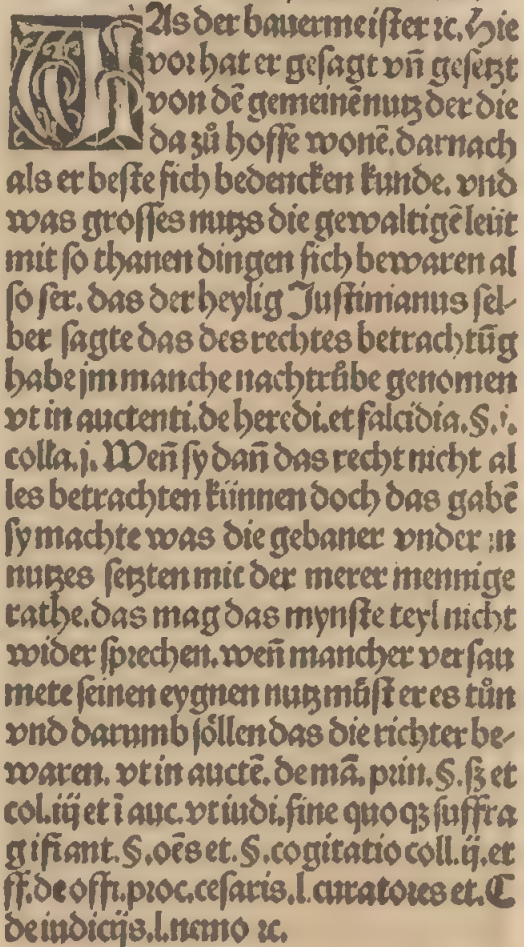 WAs der bauermeister ⁊c. Hie
vor hat er gesagt vñ gesetzt
von dē gemeinē nutz der die
da zů hoffe wonē. darnach
als er beste sich bedencken kunde. vnd
was grosses nutzs die gewaltigē leüt
mit so thanen dingen sich bewaren al
so fer. das der heylig Justinianus sel⸗
ber sagte das des rechtes betrachtūg
habe jm manche nachtrůbe genomen
vt in auctenti. de heredi. et falcidia. §. i.
colla. j. Weñ sy dañ das recht nicht al
les betrachten künnen doch das gabē
sy machte was die gebaner vnder in
nutzes setzten mit der merer mennige
rathe. das mag das mynste teyl nicht
wider sprechen. weñ mancher versau
mete seinen eygnen nutz můst er es tůn
vnd darumb söllen das die richter be⸗
waren. vt in auctē. de mā. prin. §. sz et
col. iij et ī auc. vt iudi. sine quoqz suffra
gi fiant. §. oēs et. §. cogitatio coll. ij. et
ff. de offi. proc. cesaris. l. curatores et. C
de indicijs. l. nemo ⁊c.